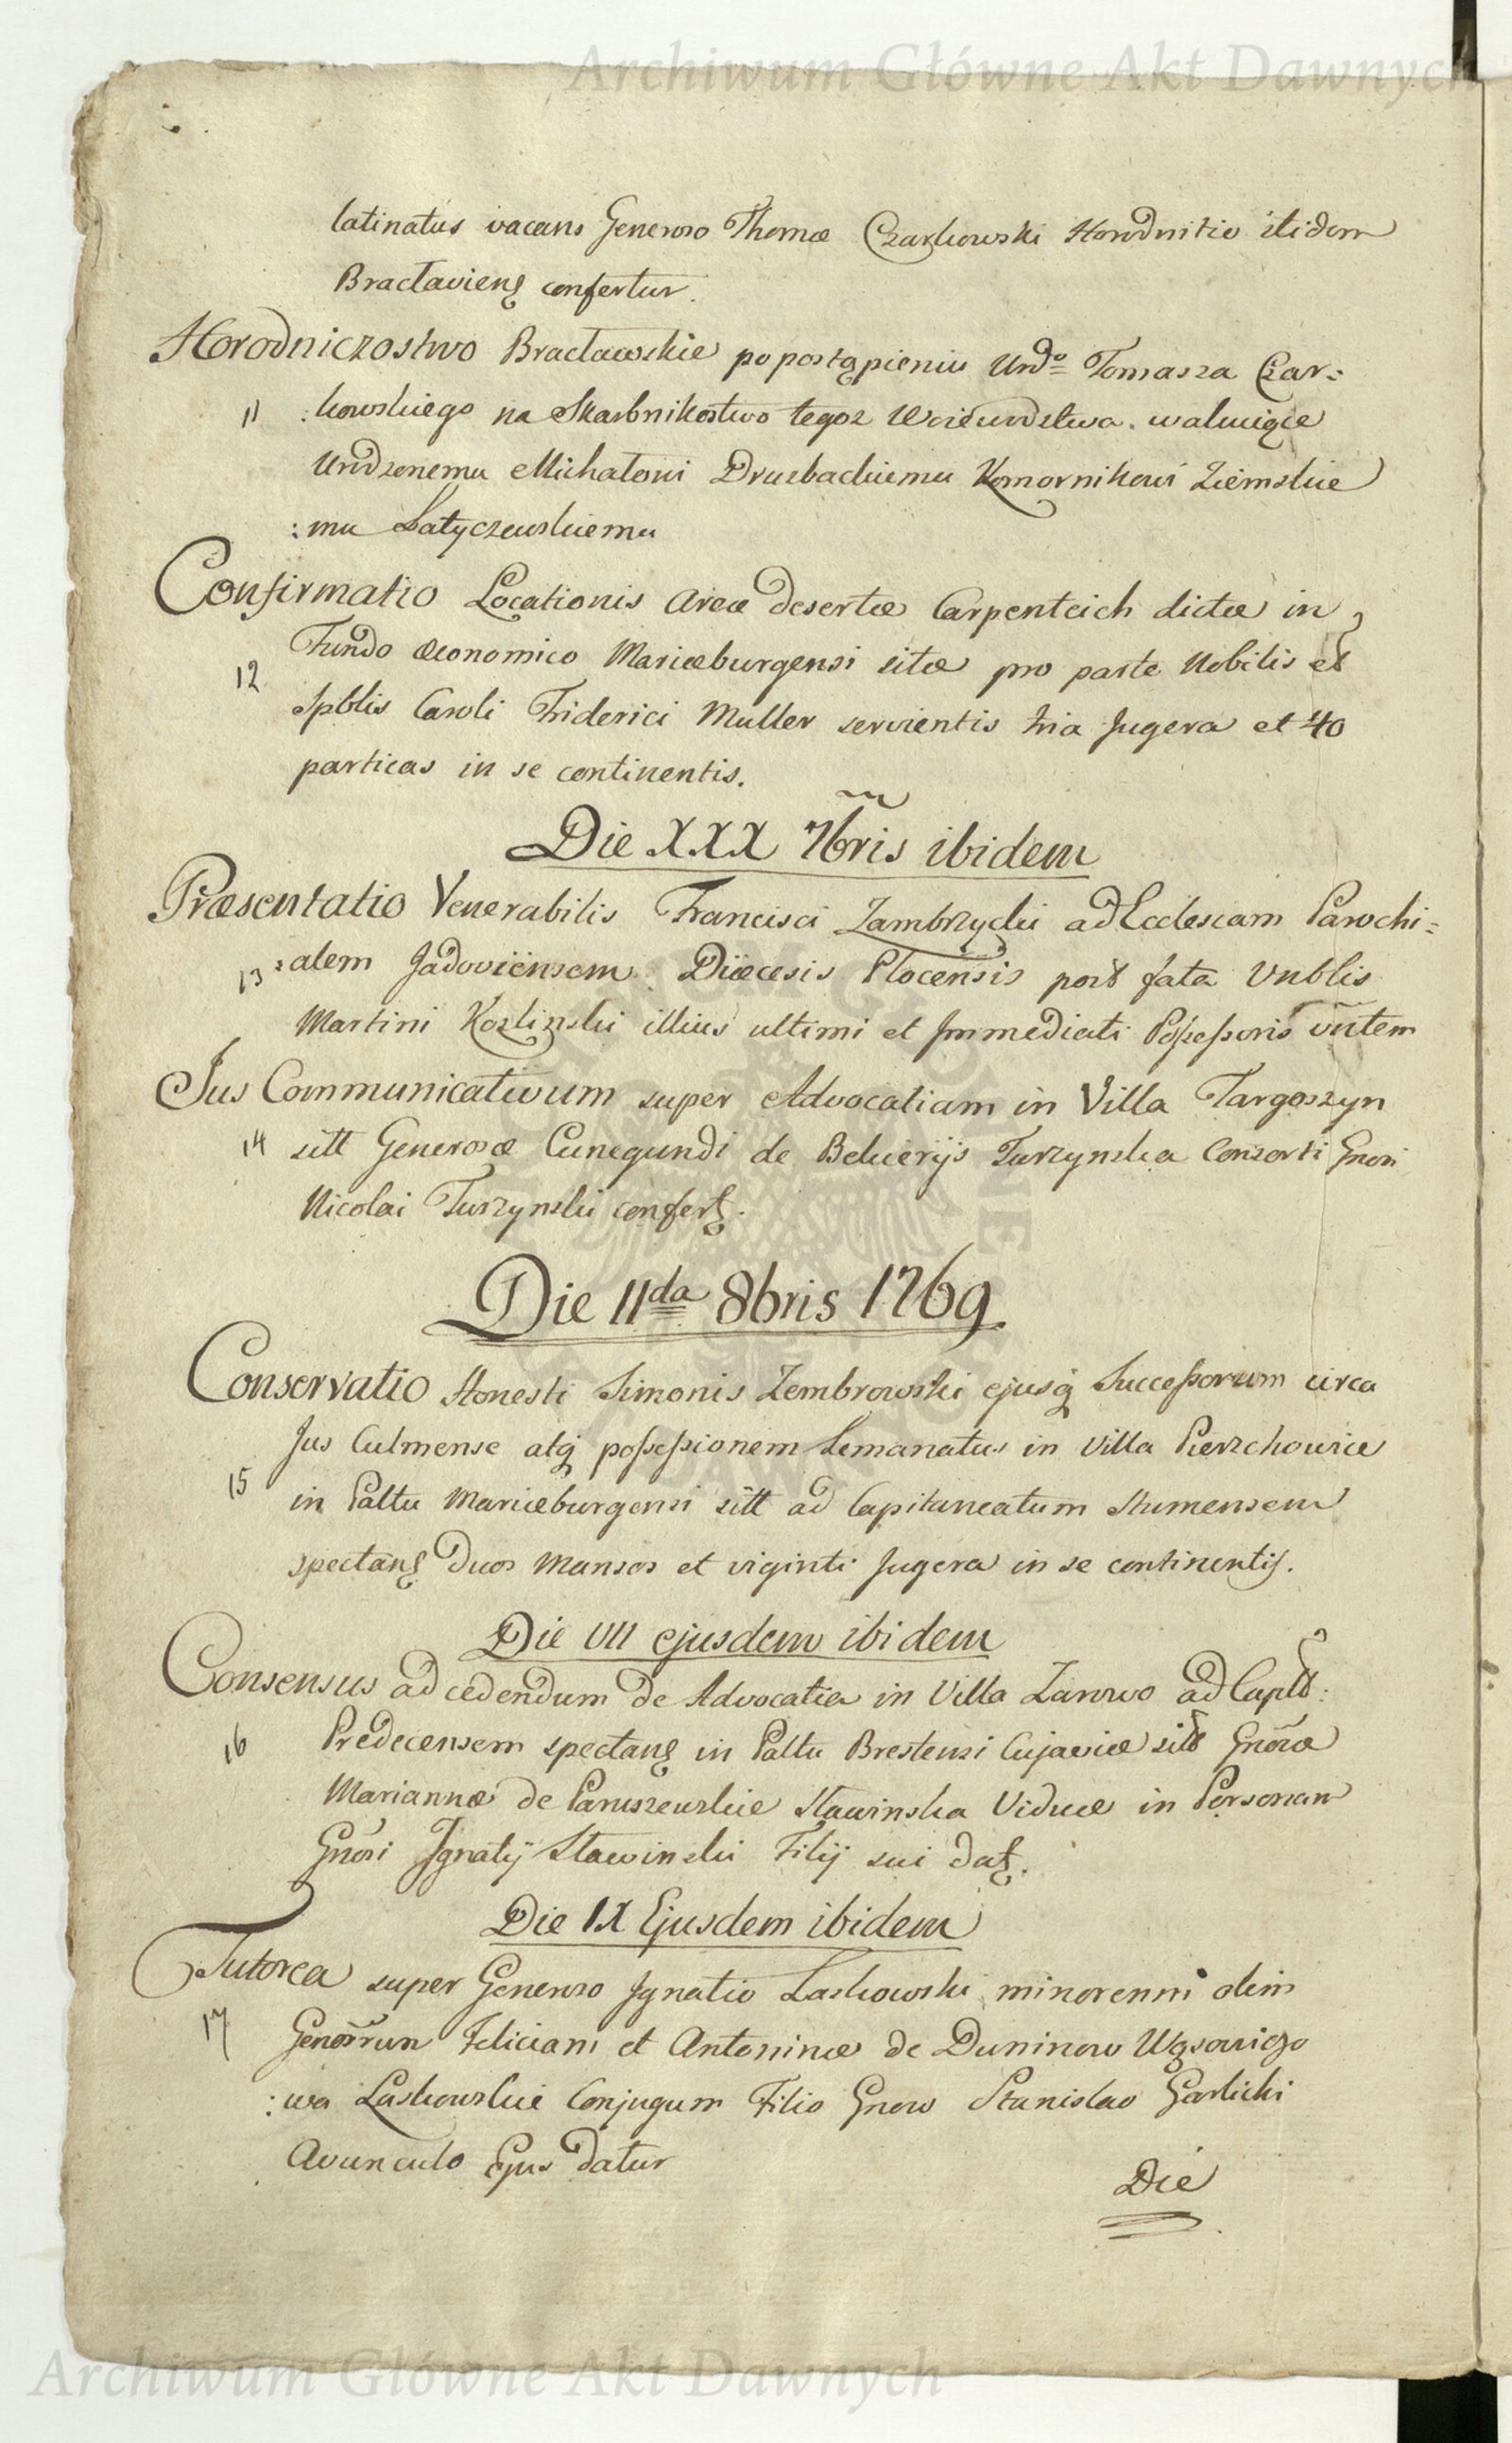 Archiwum Główne Akt Dawnych
latinatus vacans Generoso Thomæ Czarkowski Horodnitio itidem
Bracłaviens confertur.
Horodniczostwo Bracławskie po postąpieniu Urdo Tomasza Czar:
11 :kowskiego na Skarbnikostwo tegoz Woiewodztwa. wakuiące
Urodzonemu Michałowi Druzbackiemu Komornikowi Ziemskie
:mu Latyczewskiemu
Confirmatio Locationis Areæ desertæ Carpenteich dictæ in
Fundo Œconomico Mariæburgensi sitæ pro parte Nobilis et
12 Spblis Caroli Friderici Muller servientis tria Jugera et 40
particas in se continentis.
Die XXX 7bris ibidem
Præsentatio Venerabilis Francisci Zambrzycki ad Ecclesiam Parochi=
13 :alem Jadoviensem Diœcesis Plocensis post fata Vnblis
Martini Kozlinski illius ultimi et Immediati Possessoris vñtem
Jus Communicativum super Advocatiam in Villa Targoszyn
14 sitt Generosæ Cunegundi de Bekierijs Turzynska Consorti Gnosi
Nicolai Turzynski confert.
Die 11da 8bris 1769
Conservatio Honesti Simonis Zembrowski ejusq Successorum circa
Jus Culmense atq possessionem Lemanatus in Villa Pierzchowice
15 in Paltu Mariæburgensi sitt ad Capitaneatum Stumensem
spectans duos Mansos et viginti Jugera in se continentis.
Die VII ejusdem ibidem
Consensus ad cedendum de Advocatia in Villa Zarowo ad Captt:
16 Predecensem spectans in Paltu Brestensi Cujaviæ sitt Gnõsa
Mariannæ de Paruszewskie Sławinska Viduæ in Personam
Gnõsi Ignatij Sławinski Filij sui dat.
Die IX Ejusdem ibidem
Tutorea super Generoso Ignatio Laskowski minorenni olim
17 Genosrum Feliciani et Antoninæ de Duninow Wąsowiczo
:wa Laskowskie Conjugum Filio Gnoso Stanislao Garlicki
Avunculo Ejus datur
Die
Archiwum Główne Akt Dawnych